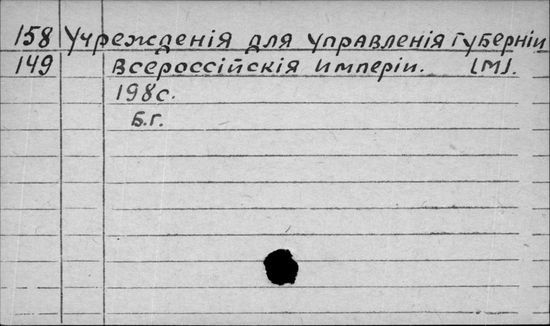 158 Учрежденія для управленія губерніи
149 Всероссійскія имперіи. [М].
198с.
Б.г.